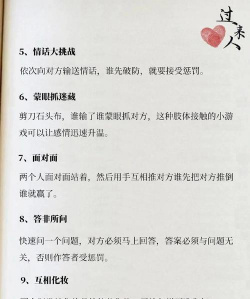 过来人
5、情话大挑战
依次向对方输送情话，谁先破防，就要接受惩罚。
6、蒙眼抓迷藏
剪刀石头布，谁输了谁蒙眼抓对方，这种肢体接触的小游
戏可以让感情迅速升温。
7、面对面
两个人面对面站着，然后用手互相推对方谁先把对方推倒
谁就赢了。
8、答非所问
快速问一个问题，对方必须马上回答，答案必须与问题无
关，否则作答者受惩罚。
9、互相化妆